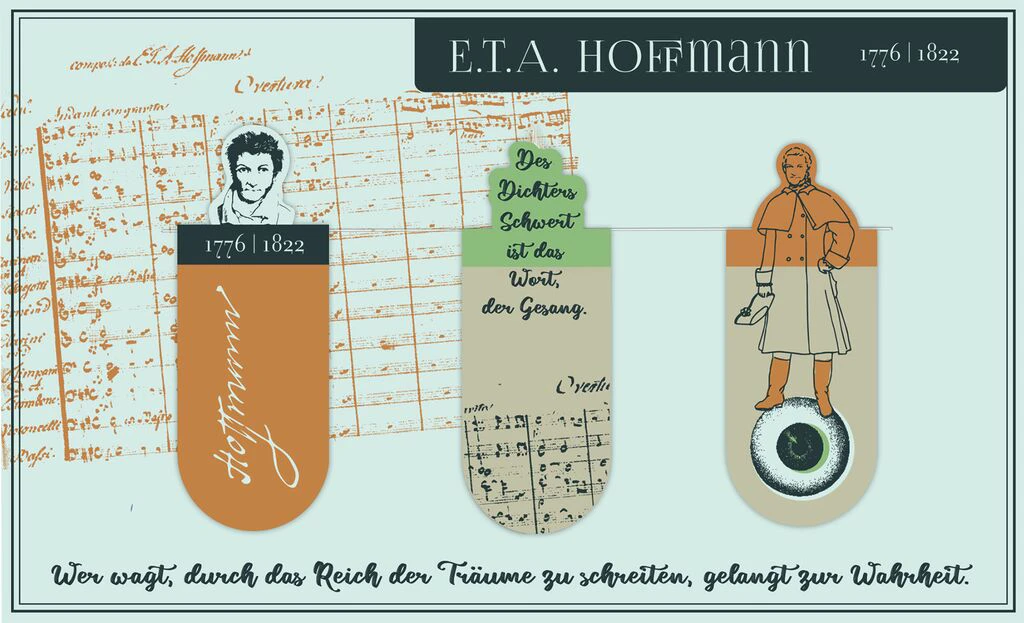 E.T.A. HOFFmann 1776 | 1822
compos: da E. T. A. Hoffmann
Overtura!
Andante con gravita
1776 | 1822
Hoffmann
Des
Dichters
Schwert
ist das
Wort,
der Gesang.
Wer wagt, durch das Reich der Träume zu schreiten, gelangt zur Wahrheit.